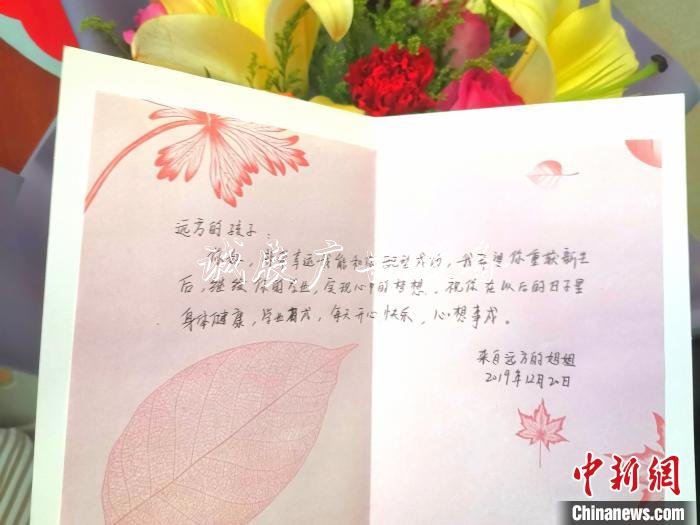 远方的孩子：
你好，很幸运我能和你配型成功，我希望你重获新生
后，继续你的学业，实现心中的梦想。祝你在以后的日子里
身体健康，学业有成，每天开心快乐，心想事成。
来自远方的姐姐
2019年12月20日
诚联广
中新網
Chinanews.com
中新网
Chinanews.com